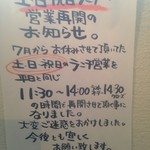 土日祝日ランチ
営業再開の
お知らせ。
7月からお休みさせて頂いてた
土日・祝日のランチ営業を
平日と同じ
11:30～14:00
の時間で再開させて頂く事に
なりました。
大変ご迷惑をおかけしました。
今後とも宜しく
お願い致します。